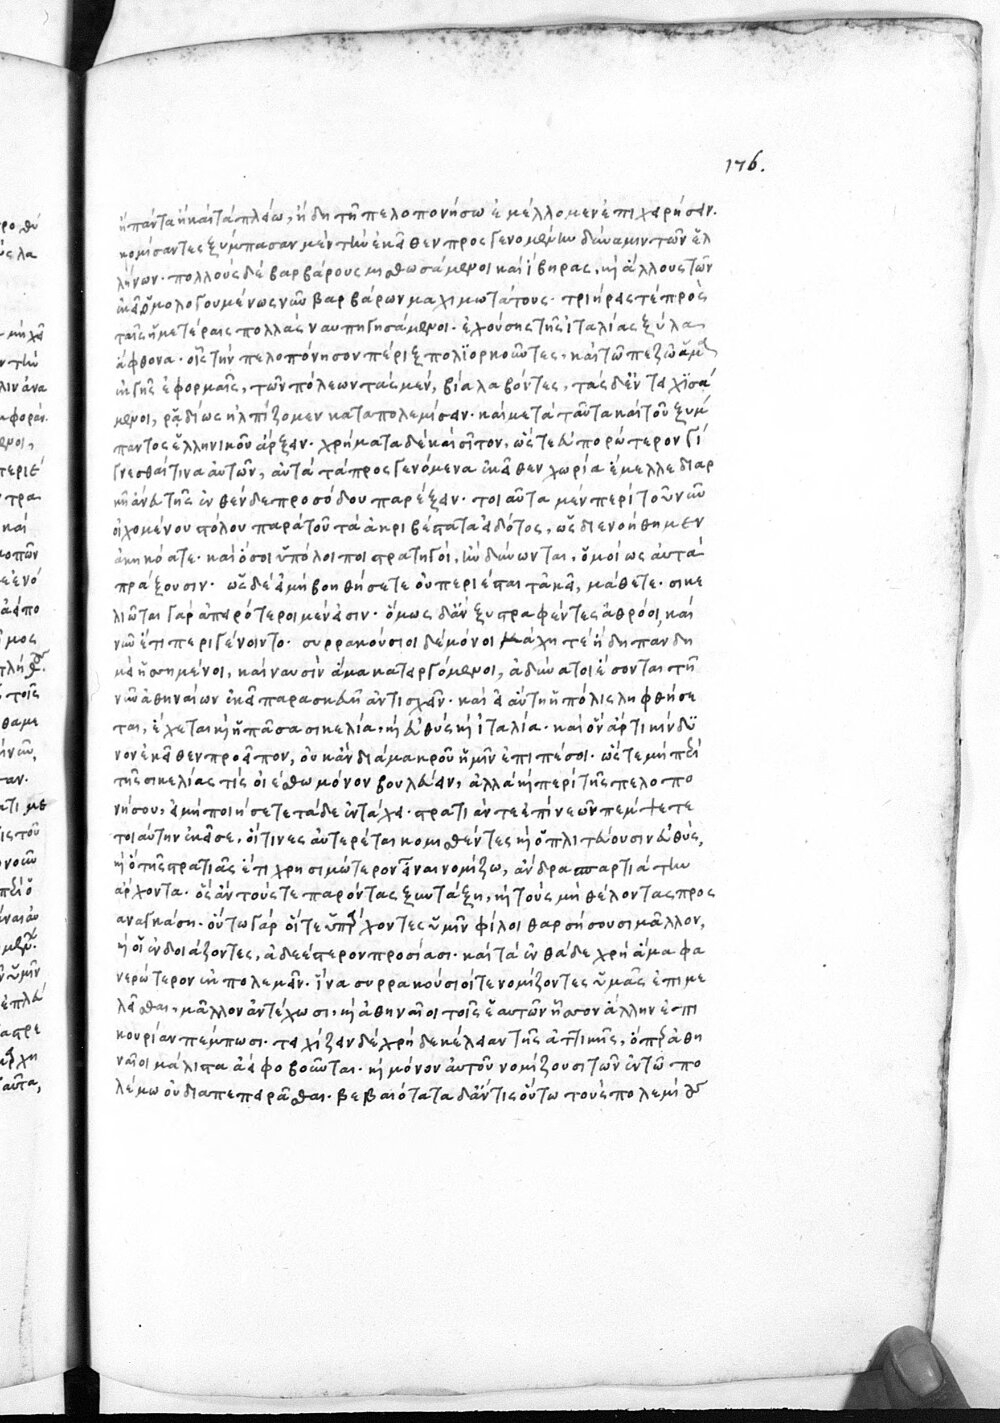 176.
ἢ πάντα ἢ καὶ τὰ πλείω, ἤδη τῆ πελοπονήσω ἐμέλλομεν ἐπιχειρήσειν.
κομίσαντες ξύμπασαν μὲν τὴν ἐκεῖθεν προσγενομένην δύναμιν τῶν ἑλ
λήνων. πολλοὺς δὲ βαρβάρους μισθωσάμενοι καὶ ἴβηρας, καὶ ἄλλους τῶν
ἐκεῖ ὁμολογουμένως νῦν βαρβάρων μαχιμωτάτους. τριήρεις τὲ πρὸς
ταῖς ἡμετέραις πολλὰς ναυπηγησάμενοι. ἐχούσης τῆς ἰταλίας ξύλα
ἄφθονα. οἷς τὴν πελοπόνησον πέριξ πολϊορκοῦντες, καὶ τῶ πεζῶ ἅμα
ἐκ γῆς ἐφορμαῖς, τῶν πόλεων τὰς μὲν, βία λαβόντες, τὰς δ' ἐντειχϊσά
μενοι, ῥαδίως ἠλπίζομεν καταπολεμίσειν. καὶ μετὰ ταῦτα καὶ τοῦ ξύμ
παντος ἑλληνικοῦ ἄρξειν. χρήματα δὲ καὶ σῖτον, ὥςτε εὐπορώτερον γί
γνεσθαί τινα αὐτῶν, αὐτὰ τὰ προςγενόμενα ἐκεῖθεν χωρία ἔμελλε διαρ
κῆ ἄνευ τῆς ἐνθένδε προσόδου παρέξειν. τοιαῦτα μὲν περὶ τοῦ νῦν
οἰχομένου στόλου παρὰ τοῦ τὰ ἀκριβέστατα εἰδότος, ὡς διενοήθημεν
ἀκηκόατε. καὶ ὅσοι ὑπόλοιποι στρατηγοὶ, ἢν δύνωνται, ὁμοίως αὐτὰ
πράξουσιν. ὡς δὲ εἰ μὴ βοηθήσετε οὐ περιέσται τἀκεῖ, μάθετε. σικε
λιῶται γὰρ ἀπειρότεροι μέν εἰσιν. ὅμως δ' ἂν ξυστραφέντες ἀθρόοι, καὶ
νῦν ἔτι περιγένοιντο. συρρακούσιοι δὲ μόνοι μάχη τὲ ἤδη πανδη
μεὶ ἡσσημένοι, καὶ ναυσὶν ἅμα κατειργόμενοι, ἀδύνατοι ἔσονται τῆ
νῦν ἀθηναίων ἐκεῖ παρασκευῆ ἀντισχεῖν. καὶ εἰ αὕτη ἡ πόλις ληφθήσε
ται, ἔχεται καὶ ἡ πᾶσα σικελία, καὶ εὐθὺς καὶ ἰταλία. καὶ ὃν ἄρτι κίνδυ
νον ἐκεῖθεν προεῖπον, οὐκ ἂν διὰ μακροῦ ἡμῖν ἐπιπέσοι. ὥςτε μὴ περὶ
τῆς σικελίας τὶς οἰέσθω μόνον βουλεύειν, ἀλλὰ καὶ περὶ τῆς πελοπο
νήσου, εἰ μὴ ποιήσετε τάδε ἐν τάχει. στρατιάν τε ἐπὶ νεῶν πέμψετε
τοιαύτην ἐκεῖσε, οἵτινες αὐτερέται κομισθέντες καὶ ὁπλιτεύουσιν εὐθὺς,
καὶ ὃ τῆς στρατιᾶς ἔτι χρησιμώτερον εἶναι νομίζω, ἄνδρα σπαρτιάτην
ἄρχοντα. ὃς ἂν τούς τε παρόντας ξυντάξη, καὶ τοὺς μὴ θέλοντας προς
αναγκάση. οὕτω γὰρ οἵ τε ὑπάρχοντες ὑμῖν φίλοι θαρσήσουσι μᾶλλον,
καὶ οἱ ἐνδοιάζοντες, ἀδεέστερον προσίασι. καὶ τὰ ἐνθάδε χρὴ ἅμα φα
νερώτερον ἐκπολεμεῖν. ἵνα συρρακούσιοί τε νομίζοντες ὑμᾶς ἐπιμε
λεῖσθαι, μᾶλλον ἀντέχωσι, καὶ ἀθηναῖοι τοῖς ἑαυτῶν ἧσσον ἄλλην ἐπι
κουρίαν πέμπωσι. τειχίζειν δὲ χρὴ δεκέλειαν τῆς ἀττικῆς, ὅπερ ἀθη
ναῖοι μάλιστα ἀεὶ φοβοῦνται. καὶ μόνον αὐτοῦ νομίζουσι τῶν ἐν τῶ πο
λέμω οὐ διαπεπειρᾶσθαι. βεβαιότατα δ' ἄν τις οὕτω τοὺς πολεμίους